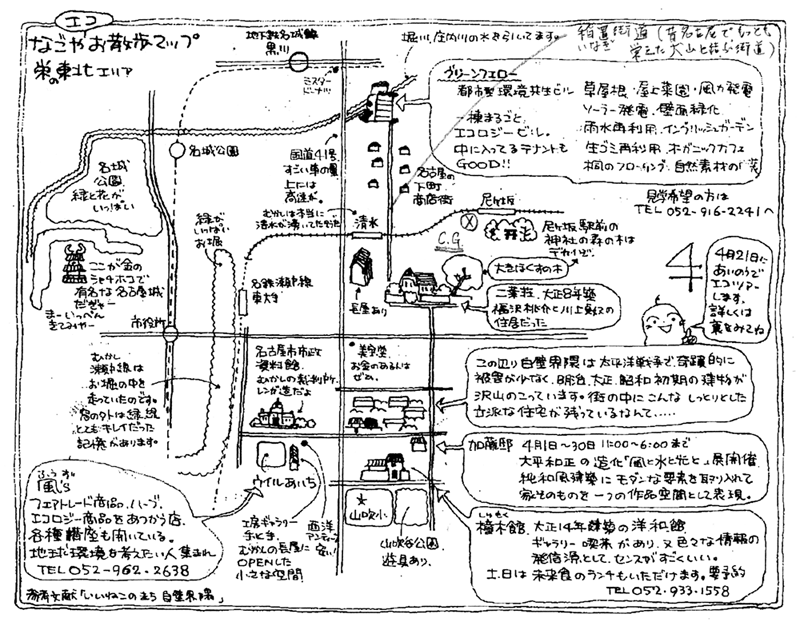 エコ
なごやお散歩マップ
栄の東北エリア
地下鉄名城線
黒川
ミスター
ドーナツ
堀川、庄内川の水を引いてます。
稲置街道(昔名古屋でもっとも
いなぎ
栄えた犬山と結ぶ街道)
グリーンフェロー
都市型環境共生ビル
一棟まるごと、
エコロジービル。
中に入ってるテナントも
GOOD!!
草屋根・屋上菜園・風力発電
ソーラー発電・壁面緑化
雨水再利用・イングリッシュガーデン
生ゴミ再利用・オーガニックカフェ
桐のフローリング・自然素材の
見学希望の方は
TEL 052-916-2241へ
名城公園
名城
公園
緑と花が
いっぱい
国道41号
すごい車の量
上には
高速が。
名古屋の
下町
商店街
むかしは本当に
清水が湧いてたそうだ
清水
尼ヶ坂
尼ヶ坂駅前の
神社の森の木は
デカイぞ。
C.G.
大きなくすの木
緑が
いっぱいな
お堀
ここが金の
シャチホコで
有名な名古屋城
だぎゃー
まーいっぺん
きてみやー
名鉄瀬戸線
東大手
長屋あり
二葉荘、大正8年築
福沢桃介と川上貞奴の
住居だった
4
4月21日に
あいのりで
エコツアー
します。
詳しくは
裏をみてね
市役所
むかし
瀬戸線は
お堀の中を
走っていたのです。
窓の外は緑、緑
とてもキレイだった
記憶があります。
名古屋市市政
資料館
むかしの裁判所
レンガ造だよ
美宝堂
お金のあるんは
ぜめ。
この辺り白壁界隈は太平洋戦争で、奇蹟的に
被害が少なく、明治、大正、昭和初期の建物が
沢山のこっています。街の中にこんなしっとりとした
立派な住宅が残っているなんて……
加藤邸 4月1日〜30日 11:00〜6:00まで
大平和正の造化「風と水と光と」展開催
純和風建築にモダンな要素を取り入れて
家そのものを一つの作品空間として表現。
ふうず
風's
フェアトレード商品、ハーブ、
エコロジー商品をあつかう店。
各種講座も開いている。
地球環境を考えたい人集まれ
TEL 052-962-2638
ウイルあいち
工房ギャラリー
手とき、
むかしの長屋に
OPENした
小さな空間!
西洋
アンティーク
安い!
山吹小
山吹谷公園
遊具あり、
しゅもく
橦木館、大正14年建築の洋和館
ギャラリー喫茶があり、又色々な情報の
発信源として、センスがすごくいい。
土、日は未来食のランチもいただけます。要予約
TEL 052-933-1558
参考文献「いいねこのまち 白壁界隈」